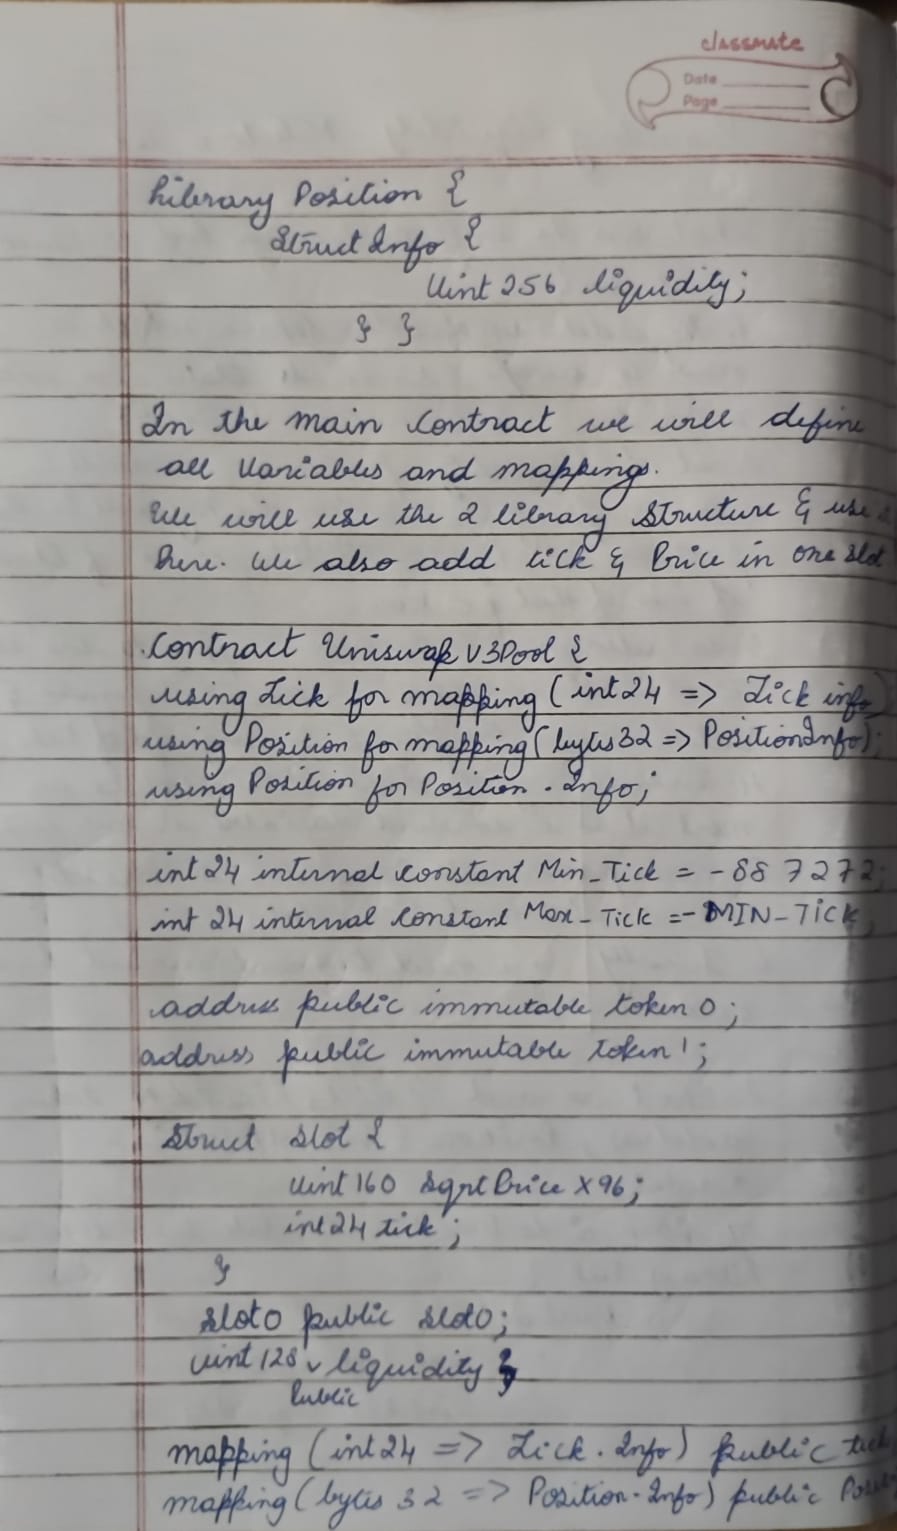 classmate
Date
Page
Library Position {
Struct Info {
Uint 256 liquidity;
} }
In the main contract we will define
all Variables and mappings.
We will use the 2 library Structure & use
here. We also add tick & Price in one slot
Contract Uniswap V3Pool {
using Tick for mapping (int24 => Tick info)
using Position for mapping (bytes32 => PositionInfo);
using Position for Position . Info;
int 24 internal constant Min_Tick = -887272;
int 24 internal Constant Max_Tick = -MIN_TICK;
address public immutable token 0;
address public immutable token 1;
Struct Slot {
uint 160 sqrt Price X96;
int 24 tick;
}
slot0 public slot0;
uint 128 liquidity ;
Public
mapping (int24 => Tick . Info) public tick
mapping (bytes 32 => Position . Info) public